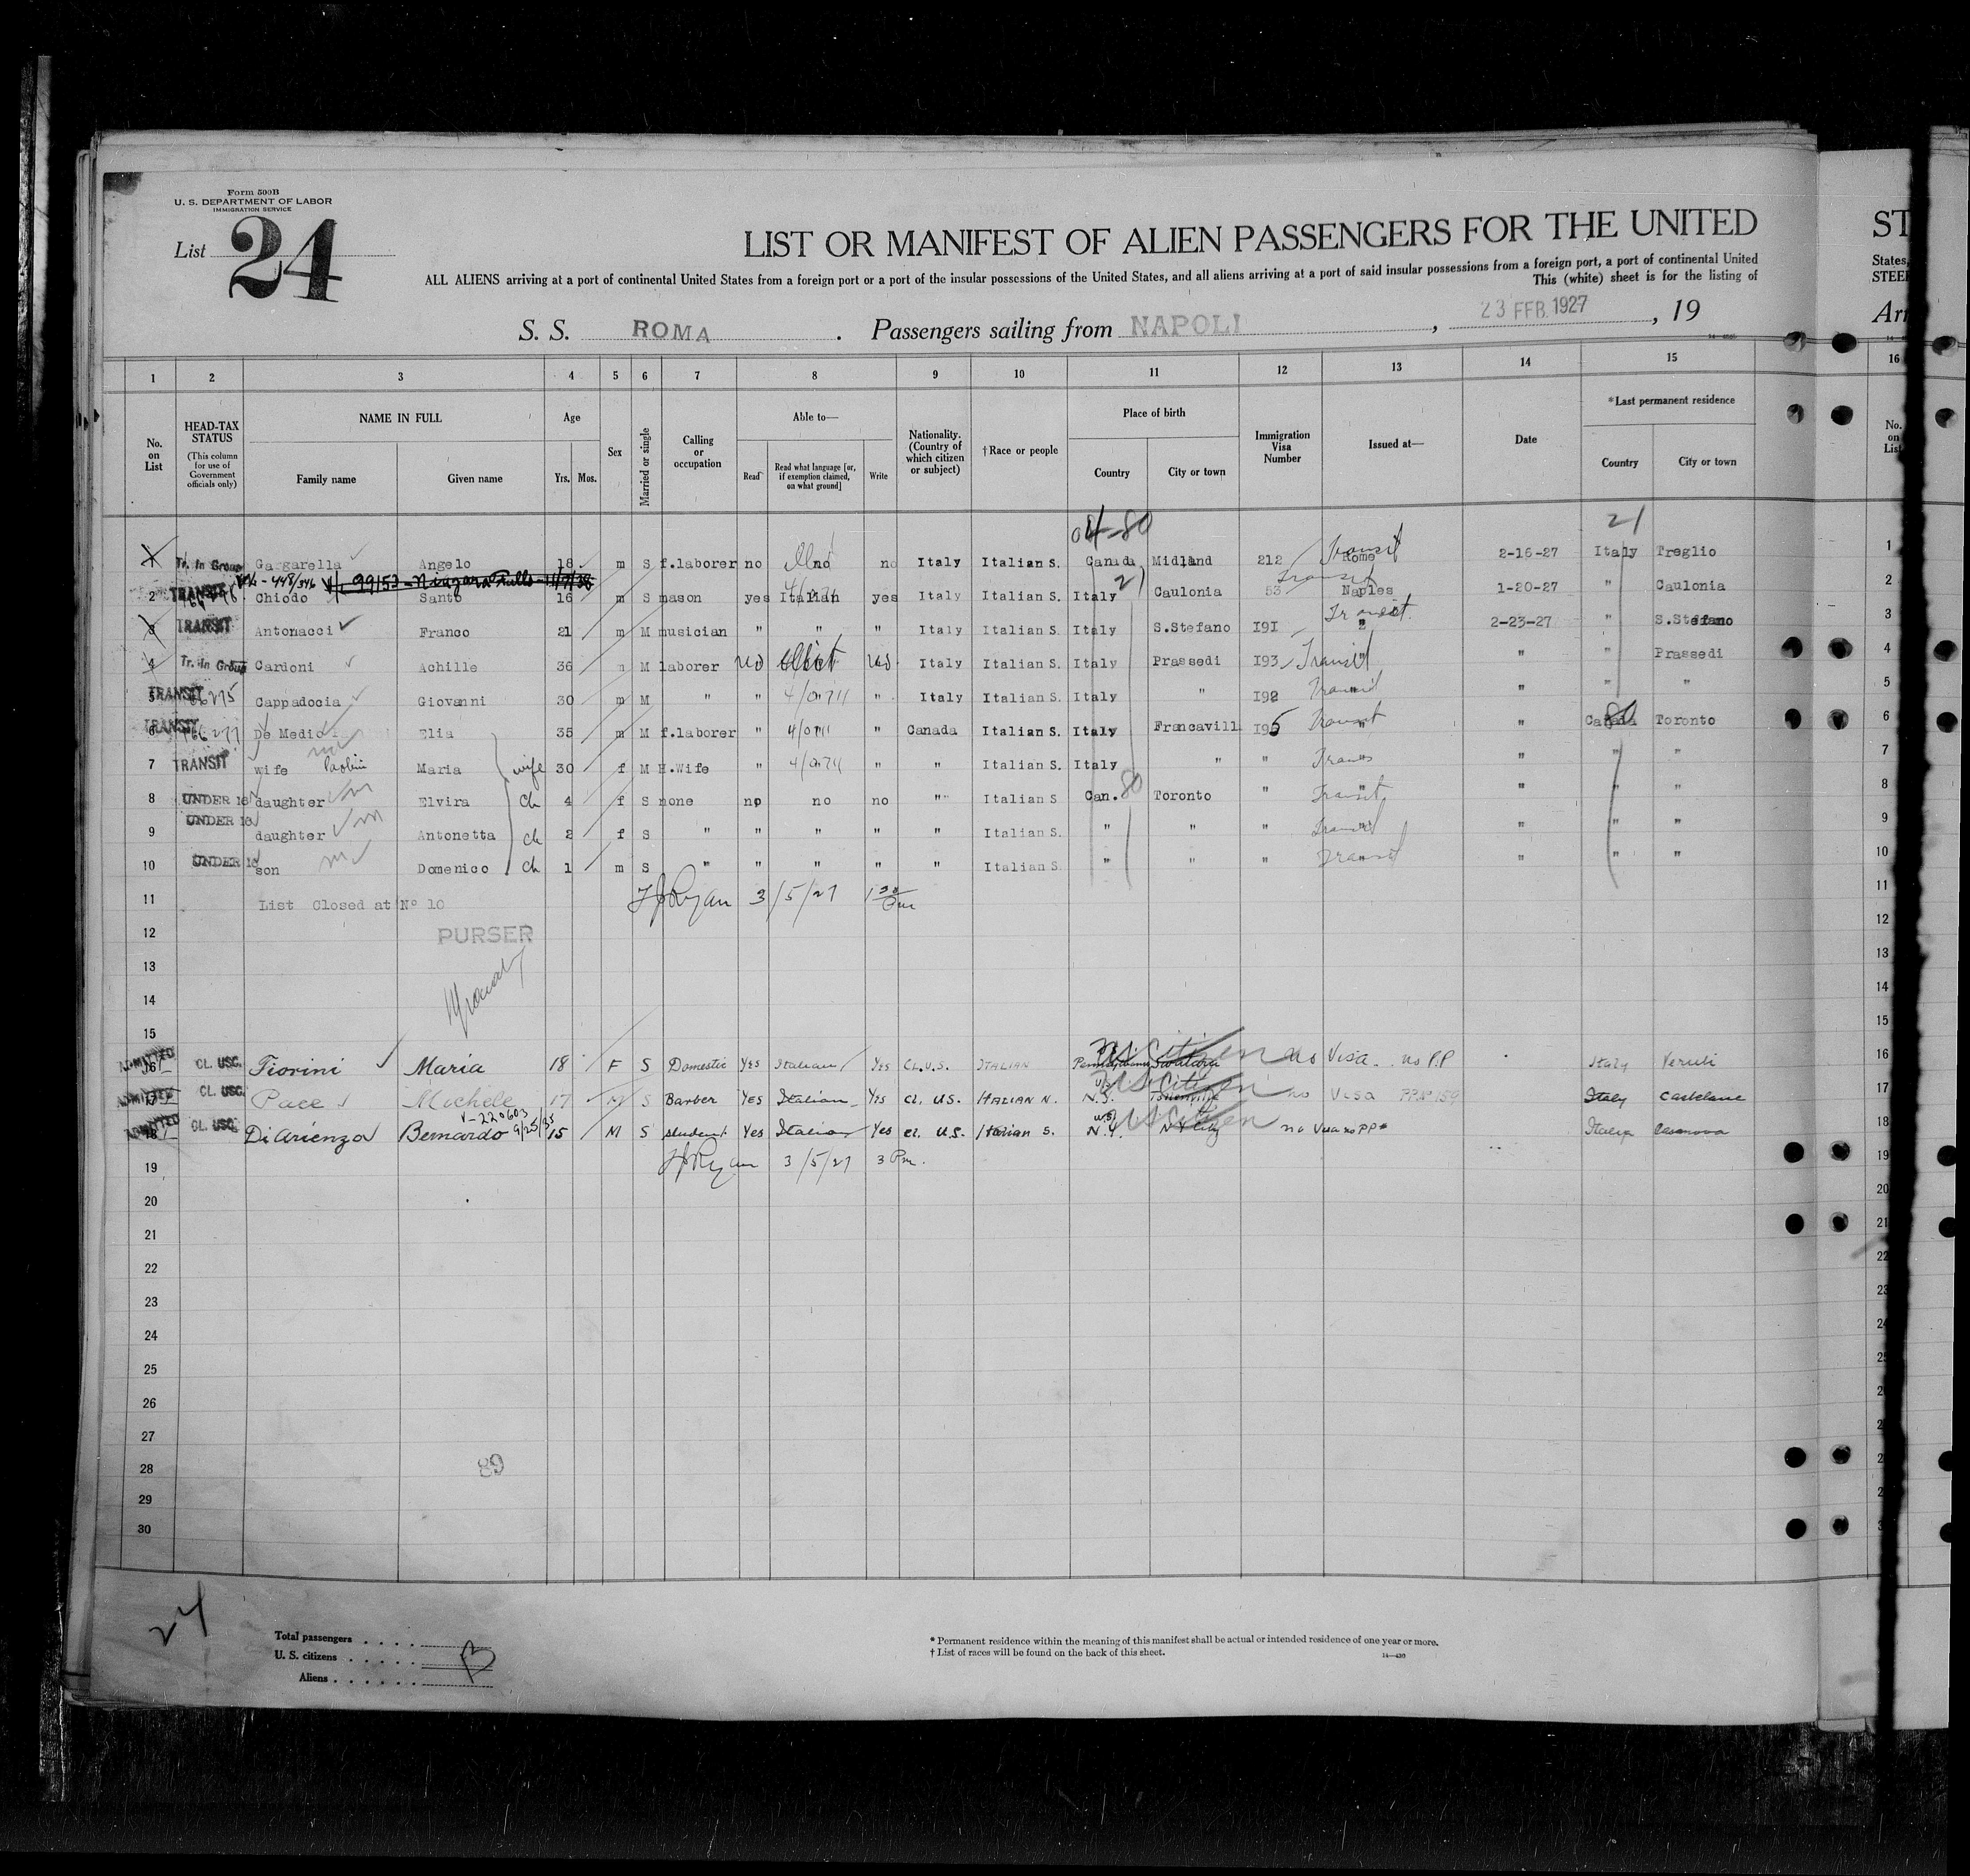 Form 500B
U. S. DEPARTMENT OF LABOR
IMMIGRATION SERVICE
List 24
LIST OR MANIFEST OF ALIEN PASSENGERS FOR THE UNITED
ST
ALL ALIENS arriving at a port of continental United States from a foreign port or a port of the insular possessions of the United States, and all aliens arriving at a port of said insular possessions from a foreign port, a port of continental United
States,
This (white) sheet is for the listing of
S. S. ROMA. Passengers sailing from NAPOLI, 23 FEB. 1927, 19
1 2 3 4 5 6 7 8 9 10 11 12 13 14 15 16
No. on List
HEAD-TAX STATUS (This column for use of Government officials only)
NAME IN FULL
Family name Given name
Age
Yrs. Mos.
Sex
Married or single
Calling or occupation
Able to—
Read Read what language [or, if exemption claimed, on what ground] Write
Nationality. (Country of which citizen or subject)
†Race or people
Place of birth
Country City or town
Immigration Visa Number
Issued at—
Date
*Last permanent residence
Country City or town
No. on List
21
Tr. In Group Gargarella Angelo 18 m S f.laborer no no no Italy Italian S. Canada Midland 212 Transit Rome 2-16-27 Italy Treglio 1
99153 - Niagara Falls
2 TRANSIT Chiodo Santo 16 m S mason yes Italian yes Italy Italian S. Italy Caulonia 53 Transit Naples 1-20-27 " Caulonia 2
3 TRANSIT Antonacci Franco 21 m M musician " " " Italy Italian S. Italy S.Stefano 191 Transit " 2-23-27 " S.Stefano 3
4 Tr. In Group Cardoni Achille 36 m M laborer no no Italy Italian S. Italy Prassedi 193 Transit " " Prassedi 4
5 TRANSIT Cappadocia Giovanni 30 m M " " " Italy Italian S. Italy " 192 Transit " " " 5
6 TRANSIT De Medio Elia 35 m M f.laborer " " Canada Italian S. Italy Francavill 195 Transit " Canada Toronto 6
7 TRANSIT wife Maria wife 30 f M H.Wife " " " Italian S. Italy " " Transit " " " 7
8 UNDER 16 daughter Elvira ch 4 f S none no no no " Italian S Can. Toronto " Transit " " " 8
9 UNDER 16 daughter Antonetta ch 2 f S " " " " " Italian S. " " " Transit " " " 9
10 UNDER 16 son Domenico ch 1 m S " " " " " Italian S " " " Transit " " " 10
11 List Closed at N° 10 Ryan 3/5/27 11
12 PURSER 12
13 13
14 14
15
16 ADMITTED CL. USC. Fiorini Maria 18 F S Domestic Yes Italian Yes CL.U.S. ITALIAN US Citizen no Visa. no P.P Italy Veruli 16
17 ADMITTED CL. USC. Pace Michele 17 M S Barber Yes Italian Yes CL. US. ITALIAN N. N.J. US Citizen no Visa Italy 17
18 ADMITTED CL. USC. DiArienzo Bernardo V-220603 15 M S student Yes Italian Yes cl. U.S. Italian S. N.Y. N Y City US Citizen no Visa no PP Italia Casanova 18
19 Ryan 3/5/27 3 Pm. 19
20 20
21 21
22 22
23 23
24
25
26
27
28 89
29
30
24
Total passengers
U. S. citizens
Aliens
13
* Permanent residence within the meaning of this manifest shall be actual or intended residence of one year or more.
† List of races will be found on the back of this sheet.
14—430